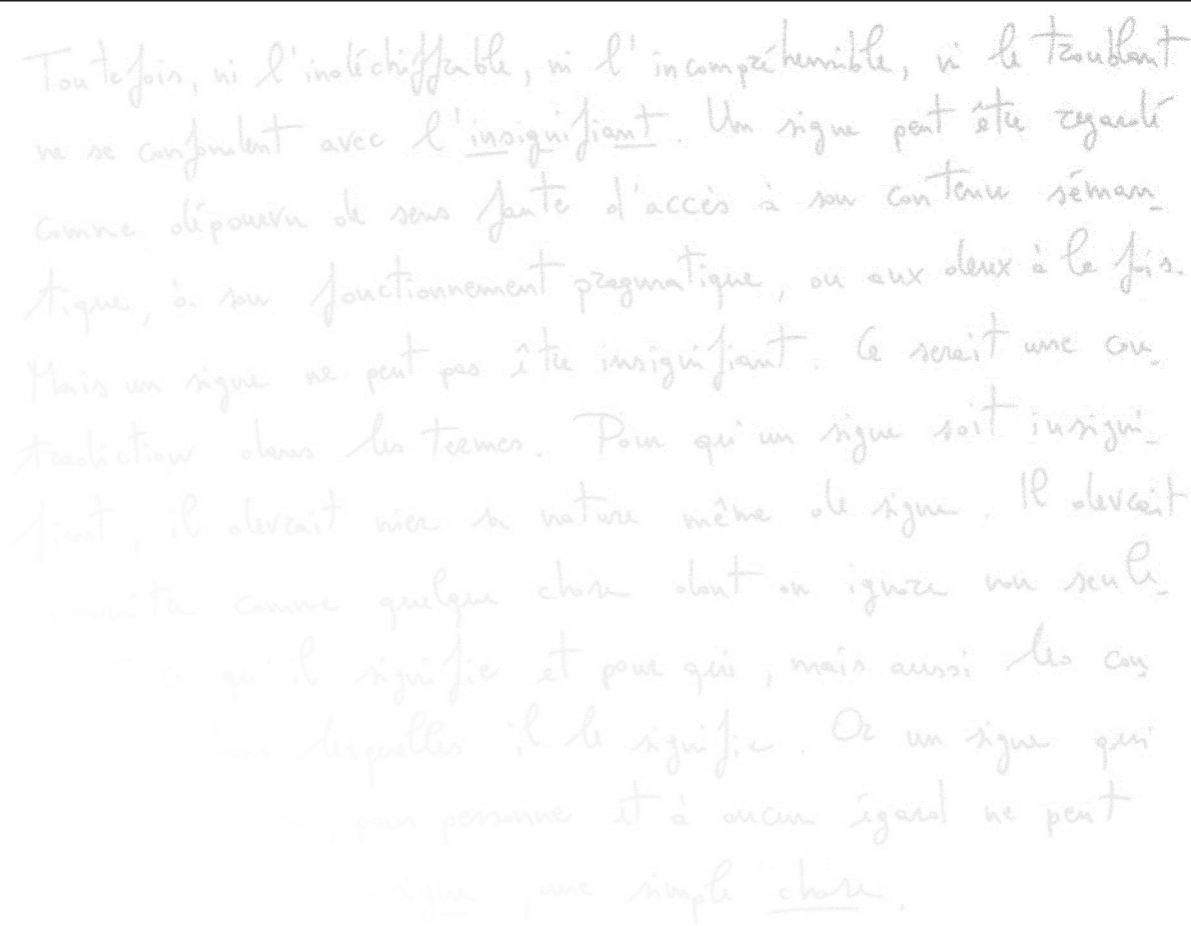 Toutefois, ni l'indéchiffrable, ni l'incompréhensible, ni le troublant
ne se confondent avec l'insignifiant. Un signe peut être regardé
comme dépourvu de sens faute d'accès à son contenu séman-
tique, à son fonctionnement pragmatique, ou aux deux à la fois.
Mais un signe ne peut pas être insignifiant. Ce serait une con-
tradiction dans les termes. Pour qu'un signe soit insigni-
fiant, il devrait nier sa nature même de signe. Il devrait
apparaître comme quelque chose dont on ignore non seule-
ce qu'il signifie et pour qui, mais aussi les con-
dans lesquelles il le signifie. Or un signe qui
pour personne et à aucun égard ne peut
signe, une simple chose.